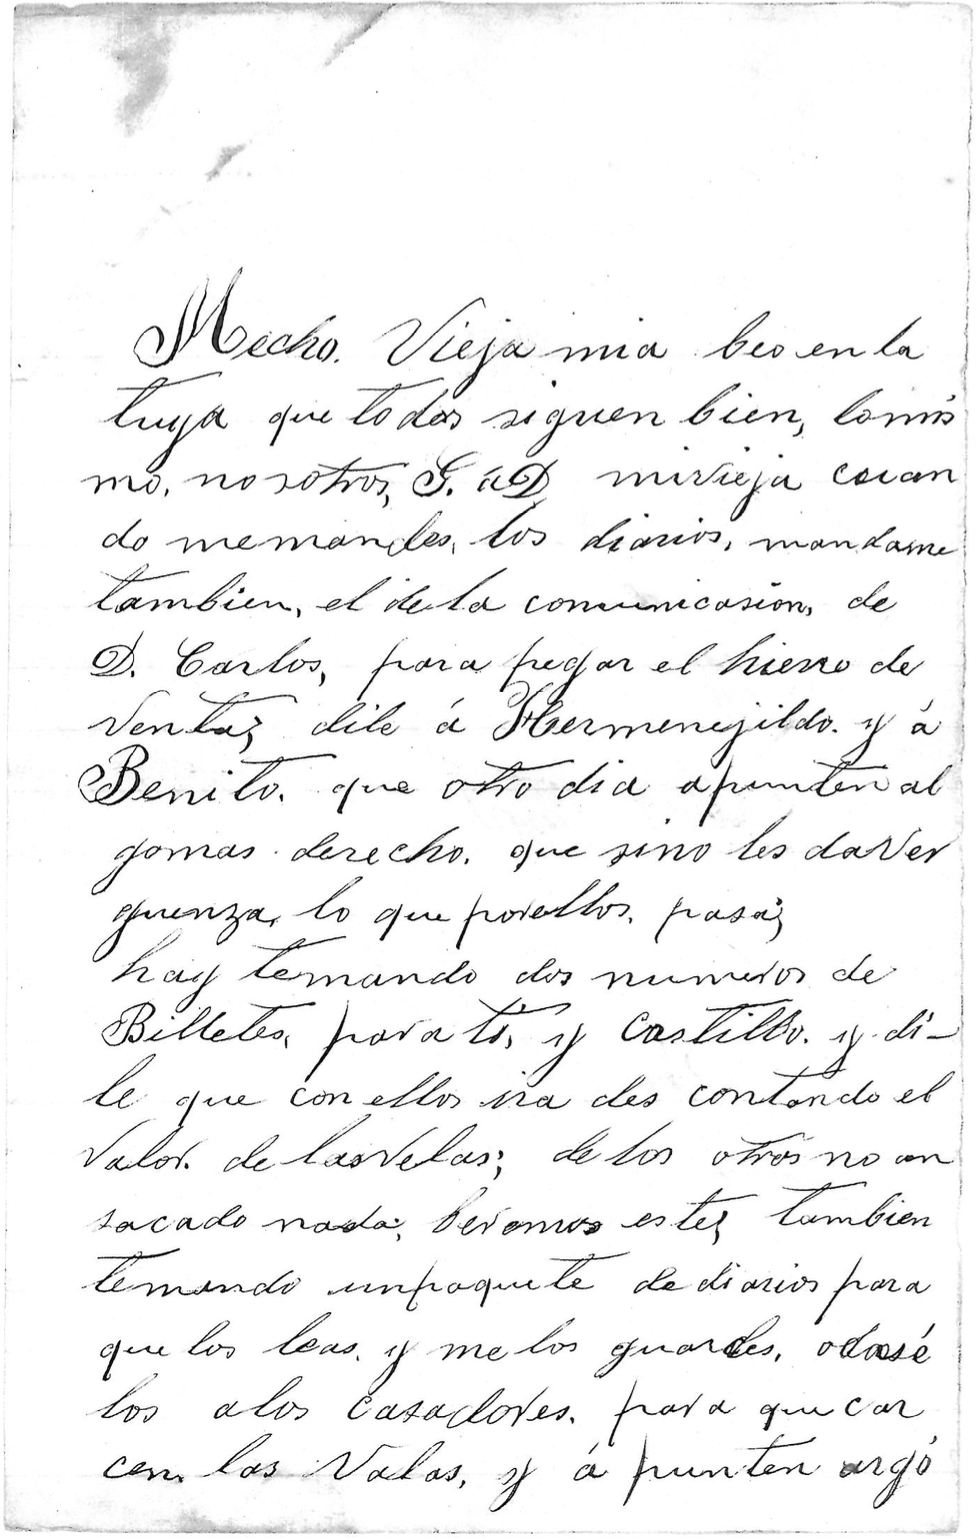 Mecho. Vieja mia beo en la
tuya que todos siguen bien, lomis
mo, nosotros, G. á D, mivieja cuan
do memandes, los diarios, mandame
tambien, el de la comunicasion, de
D. Carlos, para pegar el hierro de
Venta; dile á Hermenejildo. y á
Benito. que otro dia apunten al
gomas derecho. que sino les daver
guenza, lo que porellos, pasa;
hay temando dos numeros de
Billetes, para ti, y Castillo. y di-
le que conellos ira des contando el
Valor. de lasvelas; de los otros no an
sacado nada; beremos este; tambien
temando unpaquete dediarios para
que los leas, y me los guardes, odasé
los alos casadores. para que car
cen, las Valas, y á punten argo